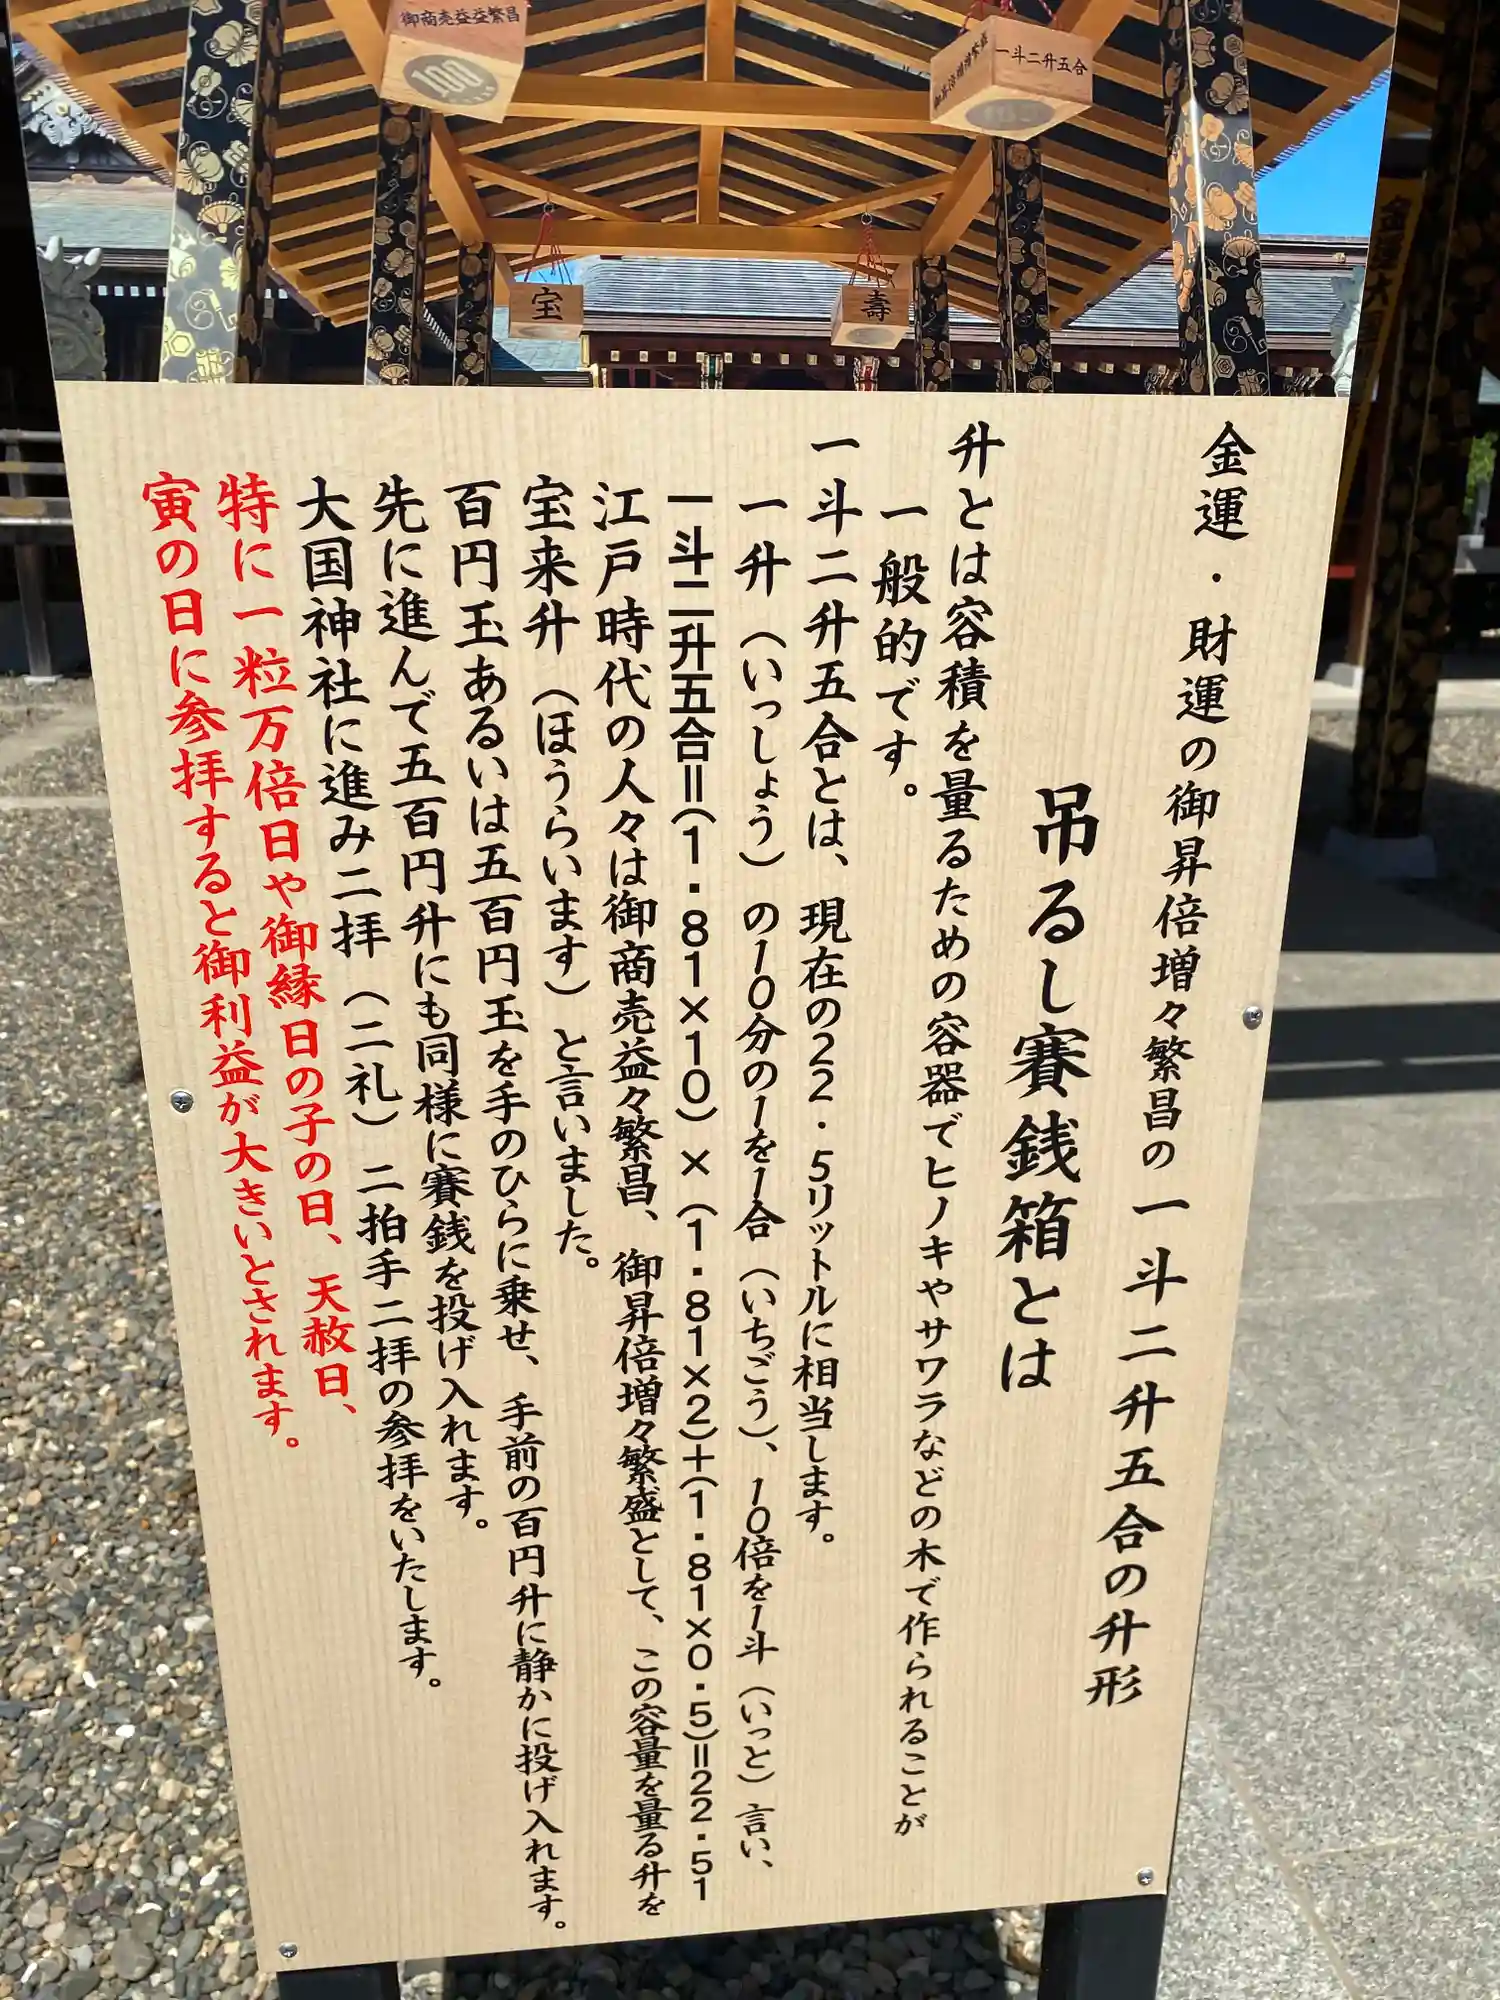 御商売益益繁昌
100
一斗二升五合
宝
壽
金運・財運の御昇倍増々繁昌の一斗二升五合の升形
吊るし賽銭箱とは
升とは容積を量るための容器でヒノキやサワラなどの木で作られることが
一般的です。
一斗二升五合とは、現在の22.5リットルに相当します。
一升（いっしょう）の10分の1を1合（いちごう）、10倍を1斗（いっと）言い、
一斗二升五合=(1.81×10)×(1.81×2)+(1.81×0.5)=22.51
江戸時代の人々は御商売益々繁昌、御昇倍増々繁盛として、この容量を量る升を
宝来升（ほうらいます）と言いました。
百円玉あるいは五百円玉を手のひらに乗せ、手前の百円升に静かに投げ入れます。
先に進んで五百円升にも同様に賽銭を投げ入れます。
大国神社に進み二拝（二礼）二拍手二拝の参拝をいたします。
特に一粒万倍日や御縁日の子の日、天赦日、
寅の日に参拝すると御利益が大きいとされます。